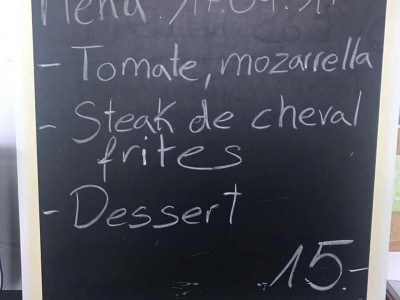 Menu
- Tomate, mozarrella
- Steak de cheval
frites
- Dessert
15.-